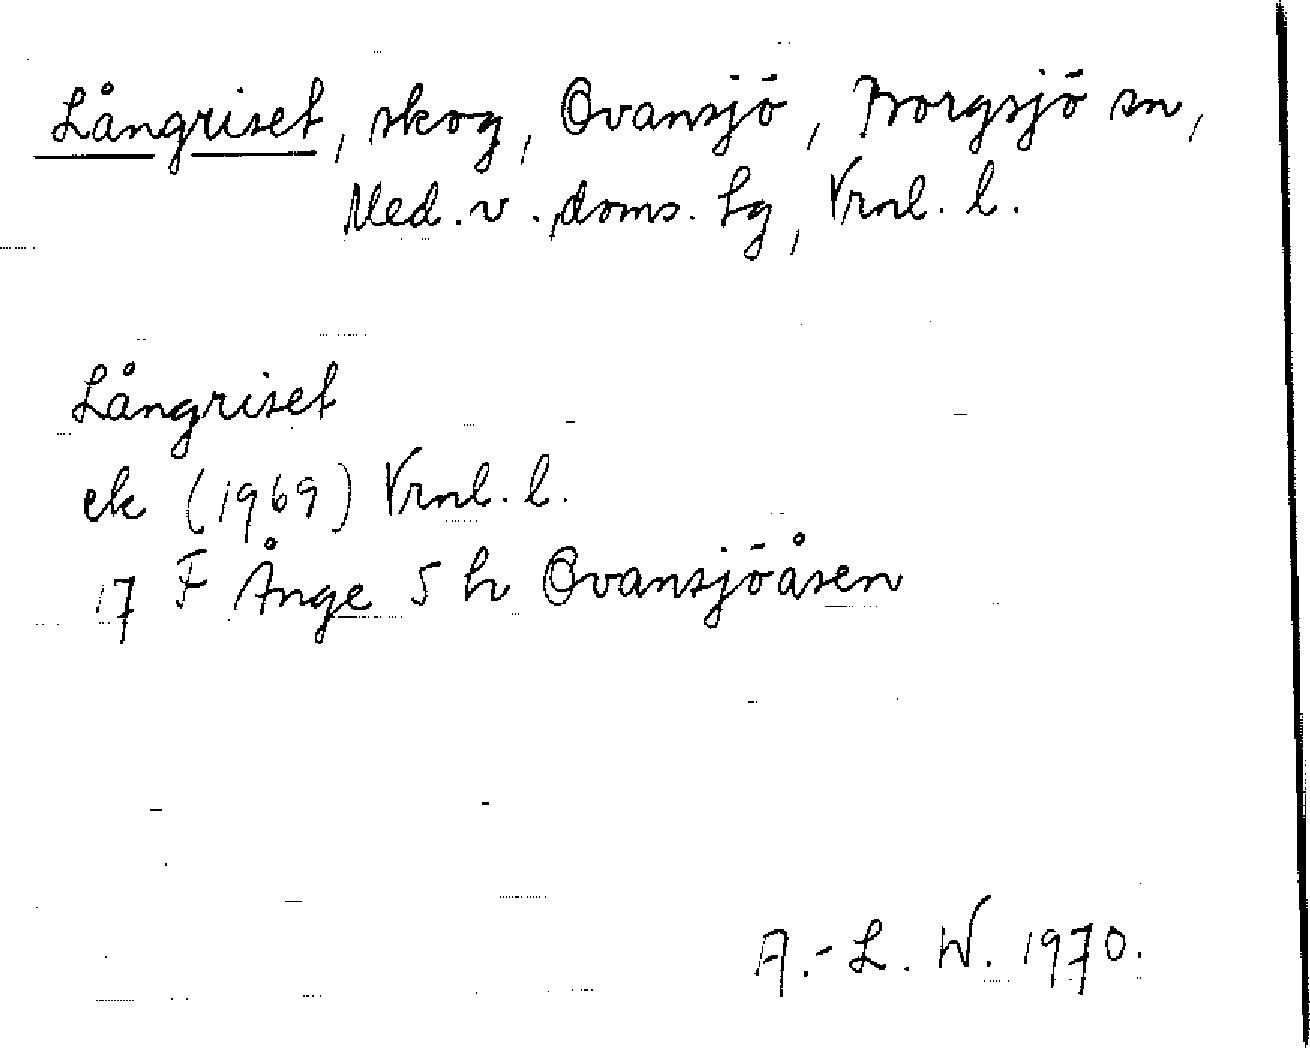 Långriset, skog, Ovansjö, Borgsjö sn,
Med. v. doms. hg, Vrnl. l.
Långriset
ek (1969) Vrnl. l.
17 F Ånge 5 h Ovansjöåsen
A.-L. W. 1970.